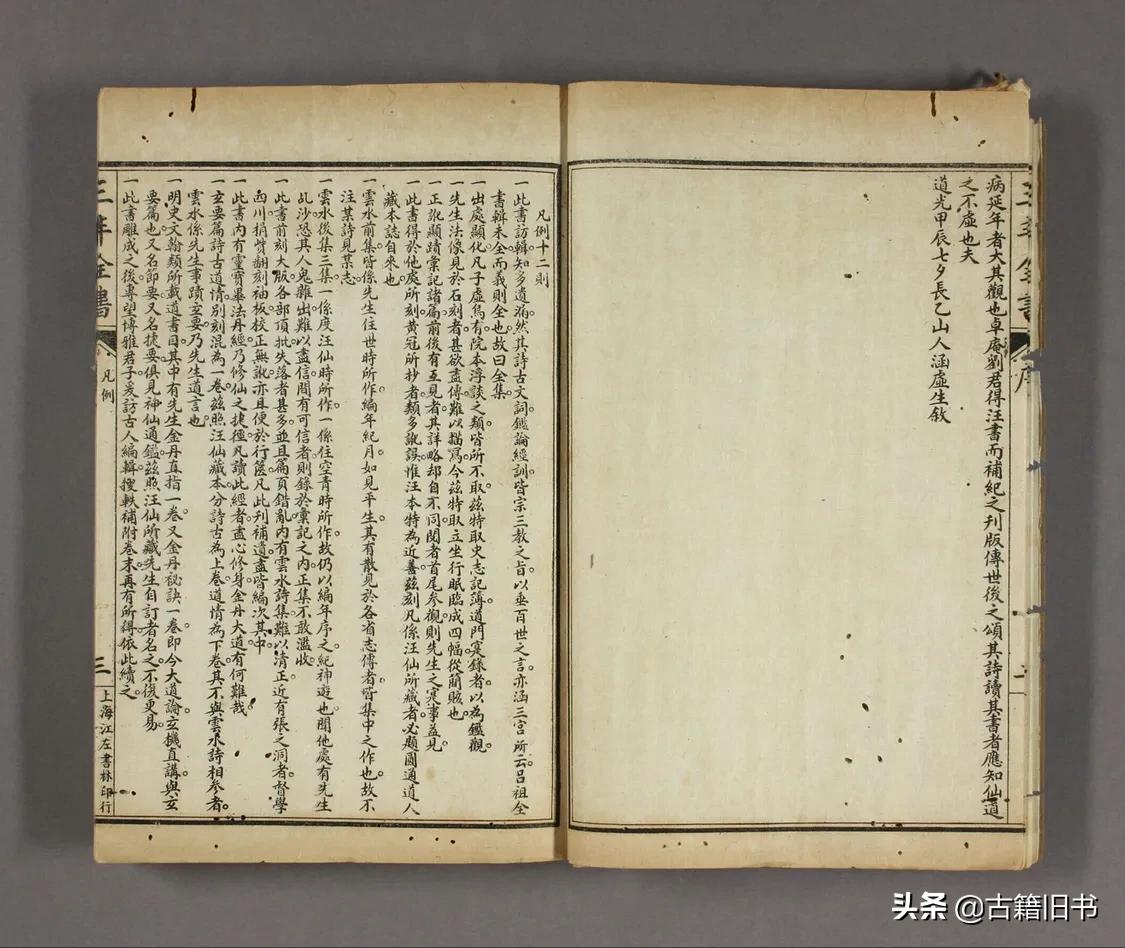 病延年者大其觀也卓庵劉君得汪書而補紀之刊版傳世後之頌其詩讀其書者應知仙道
之不虛也夫
道光甲辰七夕長乙山人涵虛生敘
凡例十二則
一此書訪輯知多遺漏然其詩古文詞鑑論經訓皆宗三教之旨以垂百世之言亦涵三宮所云呂祖全
書輯未全而義則全也故曰全集
一出處顯化凡子虛烏有院本淳談之類皆所不取茲特取史志記簿道門寔錄者以為鑑觀
一先生法像見於石刻者甚欲盡傳難以描寫今茲特取立坐行眠臨成四幅從簡貶也
一正訛顯蹟彙記諸篇前後有互見者其詳略却自不同閱者首尾參觀則先生之寔事益見
一此書得於他處所刻黃冠所抄者類多訛誤惟汪本特為近善茲刻凡係汪仙所藏者必題圓通道人
藏本誌自來也
一雲水前集皆係先生住世時所作編年紀月如見平生其有散見於各省志傳者皆集中之作也故不
注某詩見某志
一雲水後集三集一係度汪仙時所作一係住空青時所作故仍以編年序之紀神遊也聞他處有先生
乩沙恐其人鬼雜出難以盡信間有可信者則錄於彙記之內正集不敢濫收
一此書前刻大版各部頂批失落者甚多並且篇頁錯亂內有雲水詩集難以清正近有張之洞者督學
西川捐貲翻刻袖板校正無訛亦且便於行篋凡此刊補遺盡皆編次其中
一此書內有靈寶畢法丹經乃修仙之捷徑凡讀此經者盡心修身金丹大道有何難哉
一玄要篇詩古道情別刻混為一卷茲照汪仙藏本分詩古為上卷道情為下卷其不與雲水詩相參者
雲水係先生事蹟玄要乃先生道言也
一明史文翰類所載道書目其中有先生金丹直指一卷又金丹秘訣一卷即今大道論玄機直講與玄
要篇也又名節要又名捷要俱見神仙通鑑茲照汪仙所藏先生自訂者名之不復更易
一此書雕成之後專望博雅君子爰訪古人編輯搜軼補附卷末再有所得依此續之
凡例
三
上海江左書林印行
头条 @古籍旧书